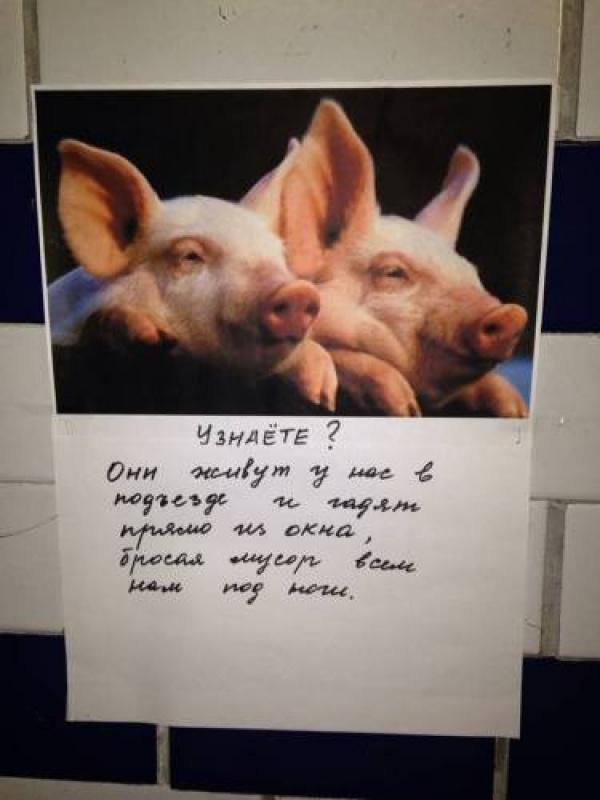 УЗНАЁТЕ?
Они живут у нас в
подъезде и гадят
прямо из окна,
бросая мусор всем
нам под ноги.